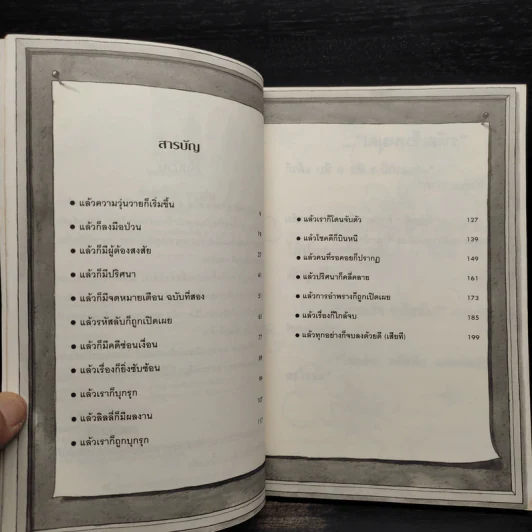 สารบัญ
● แล้วความวุ่นวายก็เริ่มขึ้น
● แล้วก็ลงมือป่วน
● แล้วก็มีผู้ต้องสงสัย
● แล้วก็มีปริศนา
● แล้วก็มีจดหมายเตือน ฉบับที่สอง
● แล้วรหัสลับก็ถูกเปิดเผย
● แล้วก็มีคดีซ่อนเงื่อน
● แล้วเรื่องก็ยิ่งซับซ้อน
● แล้วเราก็บุกรุก
● แล้วลิลลี่ก็มีผลงาน
● แล้วเราก็ถูกบุกรุก
● แล้วเราก็โดนจับตัว 127
● แล้วโชคดีก็บินหนี 139
● แล้วคนที่รอคอยก็ปรากฏ 149
● แล้วปริศนาก็คลี่คลาย 161
● แล้วการอำพรางก็ถูกเปิดเผย 173
● แล้วเรื่องก็ใกล้จบ 185
● แล้วทุกอย่างก็จบลงด้วยดี (เสียที) 199